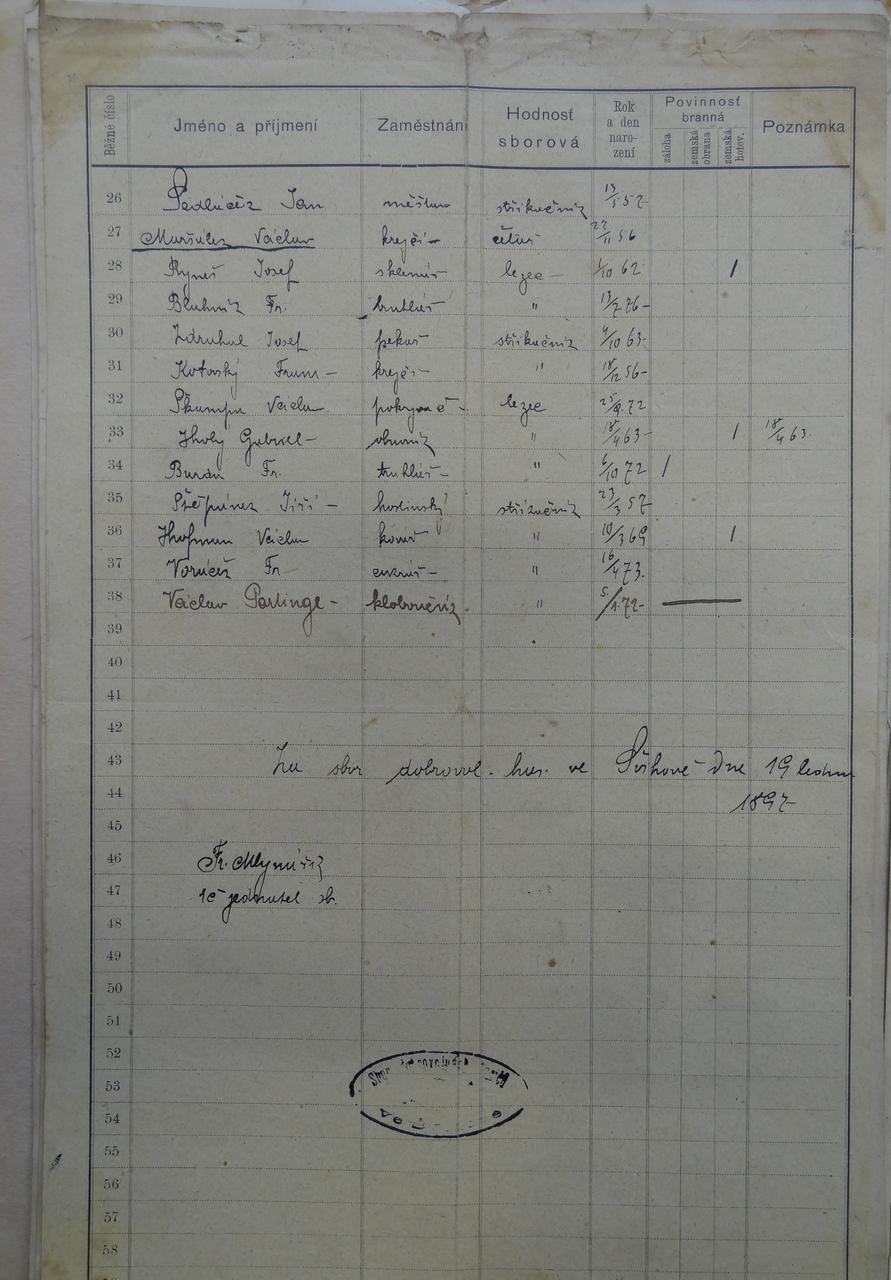 Běžné číslo Jméno a příjmení Zaměstnání Hodnosť sborová Rok a den naro- zení Povinnosť branná záloha zemská obrana zemská hotov. Poznámka
26 Sedláček Jan stříkačník 13/1 52
27 Václav krejčí 22/11 56
28 Ryneš Josef sklenář lezec 1/10 62 /
29 Fr. truhlář " 13/2 76
30 Josef pekař stříkačník 4/10 63
31 Kotovský Frant krejčí " 18/12 56
32 Škampa Václav pokrývač lezec 72
33 Gabriel obuvník " 18/4 63 / 18/4 63.
34 Burán Fr. truhlář " 6/10 72 /
35 Štěpánek Jiří hostinský stříkačník 23/3 57
36 Hofman Václav kovář " 10/3 69 /
37 Voráček Fr cukrář " 16/4 73.
38 Václav kloboučník " 5/1. 72
39
40
41
42
43 Za sbor dobrovol. has. ve dne 19 ledna
44 1897
45
46 Fr. Mlynářík
47 jednatel sb.
48
49
50
51
52
53
54
55
56
57
58